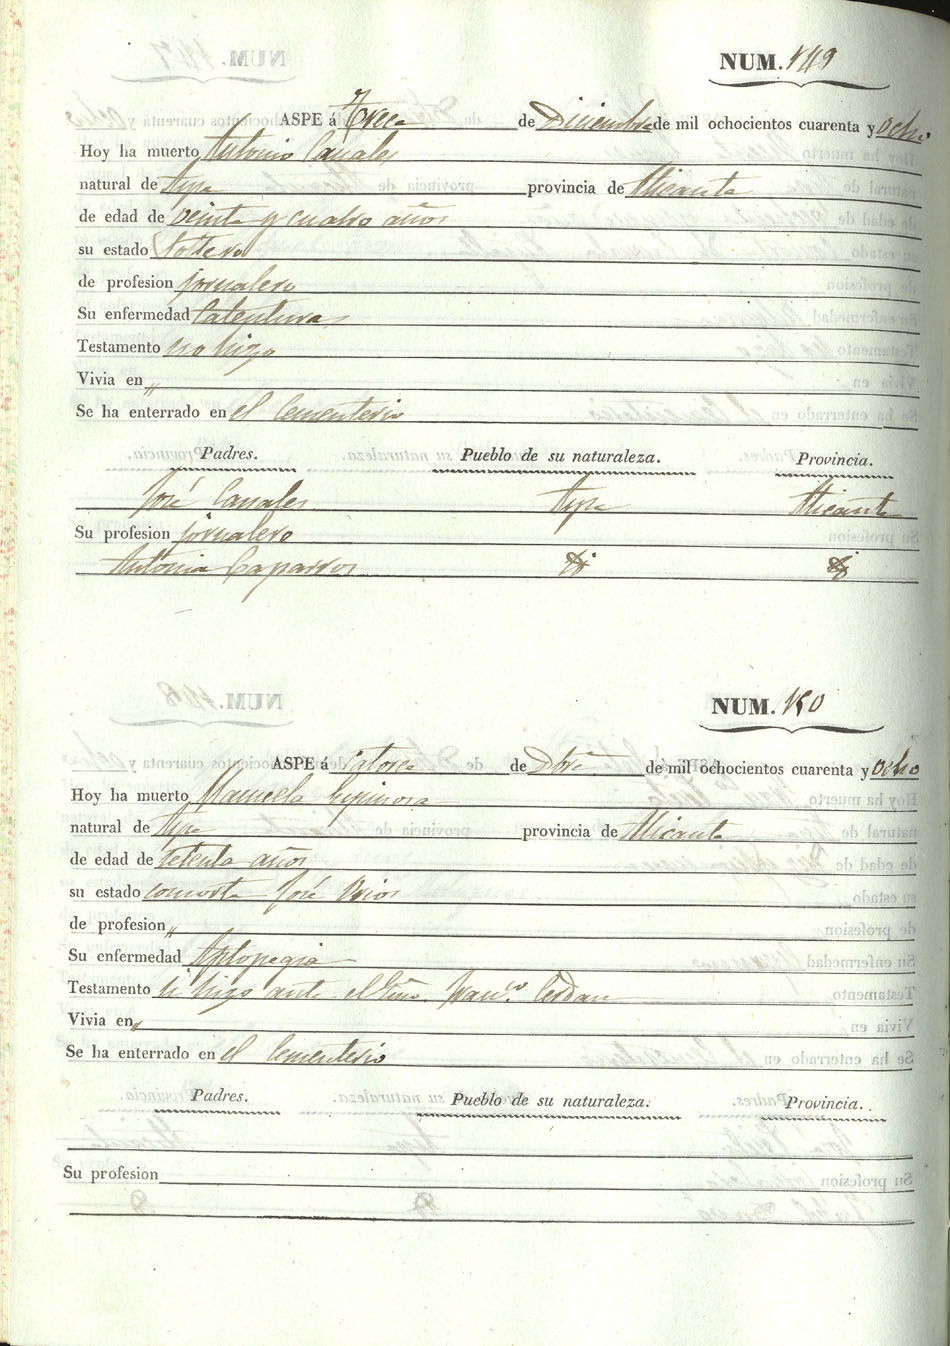 NUM. 149
ASPE á Trece de Diciembre de mil ochocientos cuarenta y ocho
Hoy ha muerto Antonio Canales
natural de Aspe provincia de Alicante
de edad de veinte y cuatro años
su estado Soltero
de profesion jornalero
Su enfermedad Calentura
Testamento no hizo
Vivia en "
Se ha enterrado en el Cementerio
Padres. Pueblo de su naturaleza. Provincia.
José Canales Aspe Alicante
Su profesion jornalero
Antonia Caparros
NUM. 150
ASPE á Catorce de Dbre de mil ochocientos cuarenta y ocho
Hoy ha muerto Manuela Espinosa
natural de Aspe provincia de Alicante
de edad de setenta años
su estado consorte José
de profesion "
Su enfermedad Aplopegia
Testamento si hizo ante el Franco. Cerdan
Vivia en "
Se ha enterrado en el Cementerio
Padres. Pueblo de su naturaleza. Provincia.
Su profesion